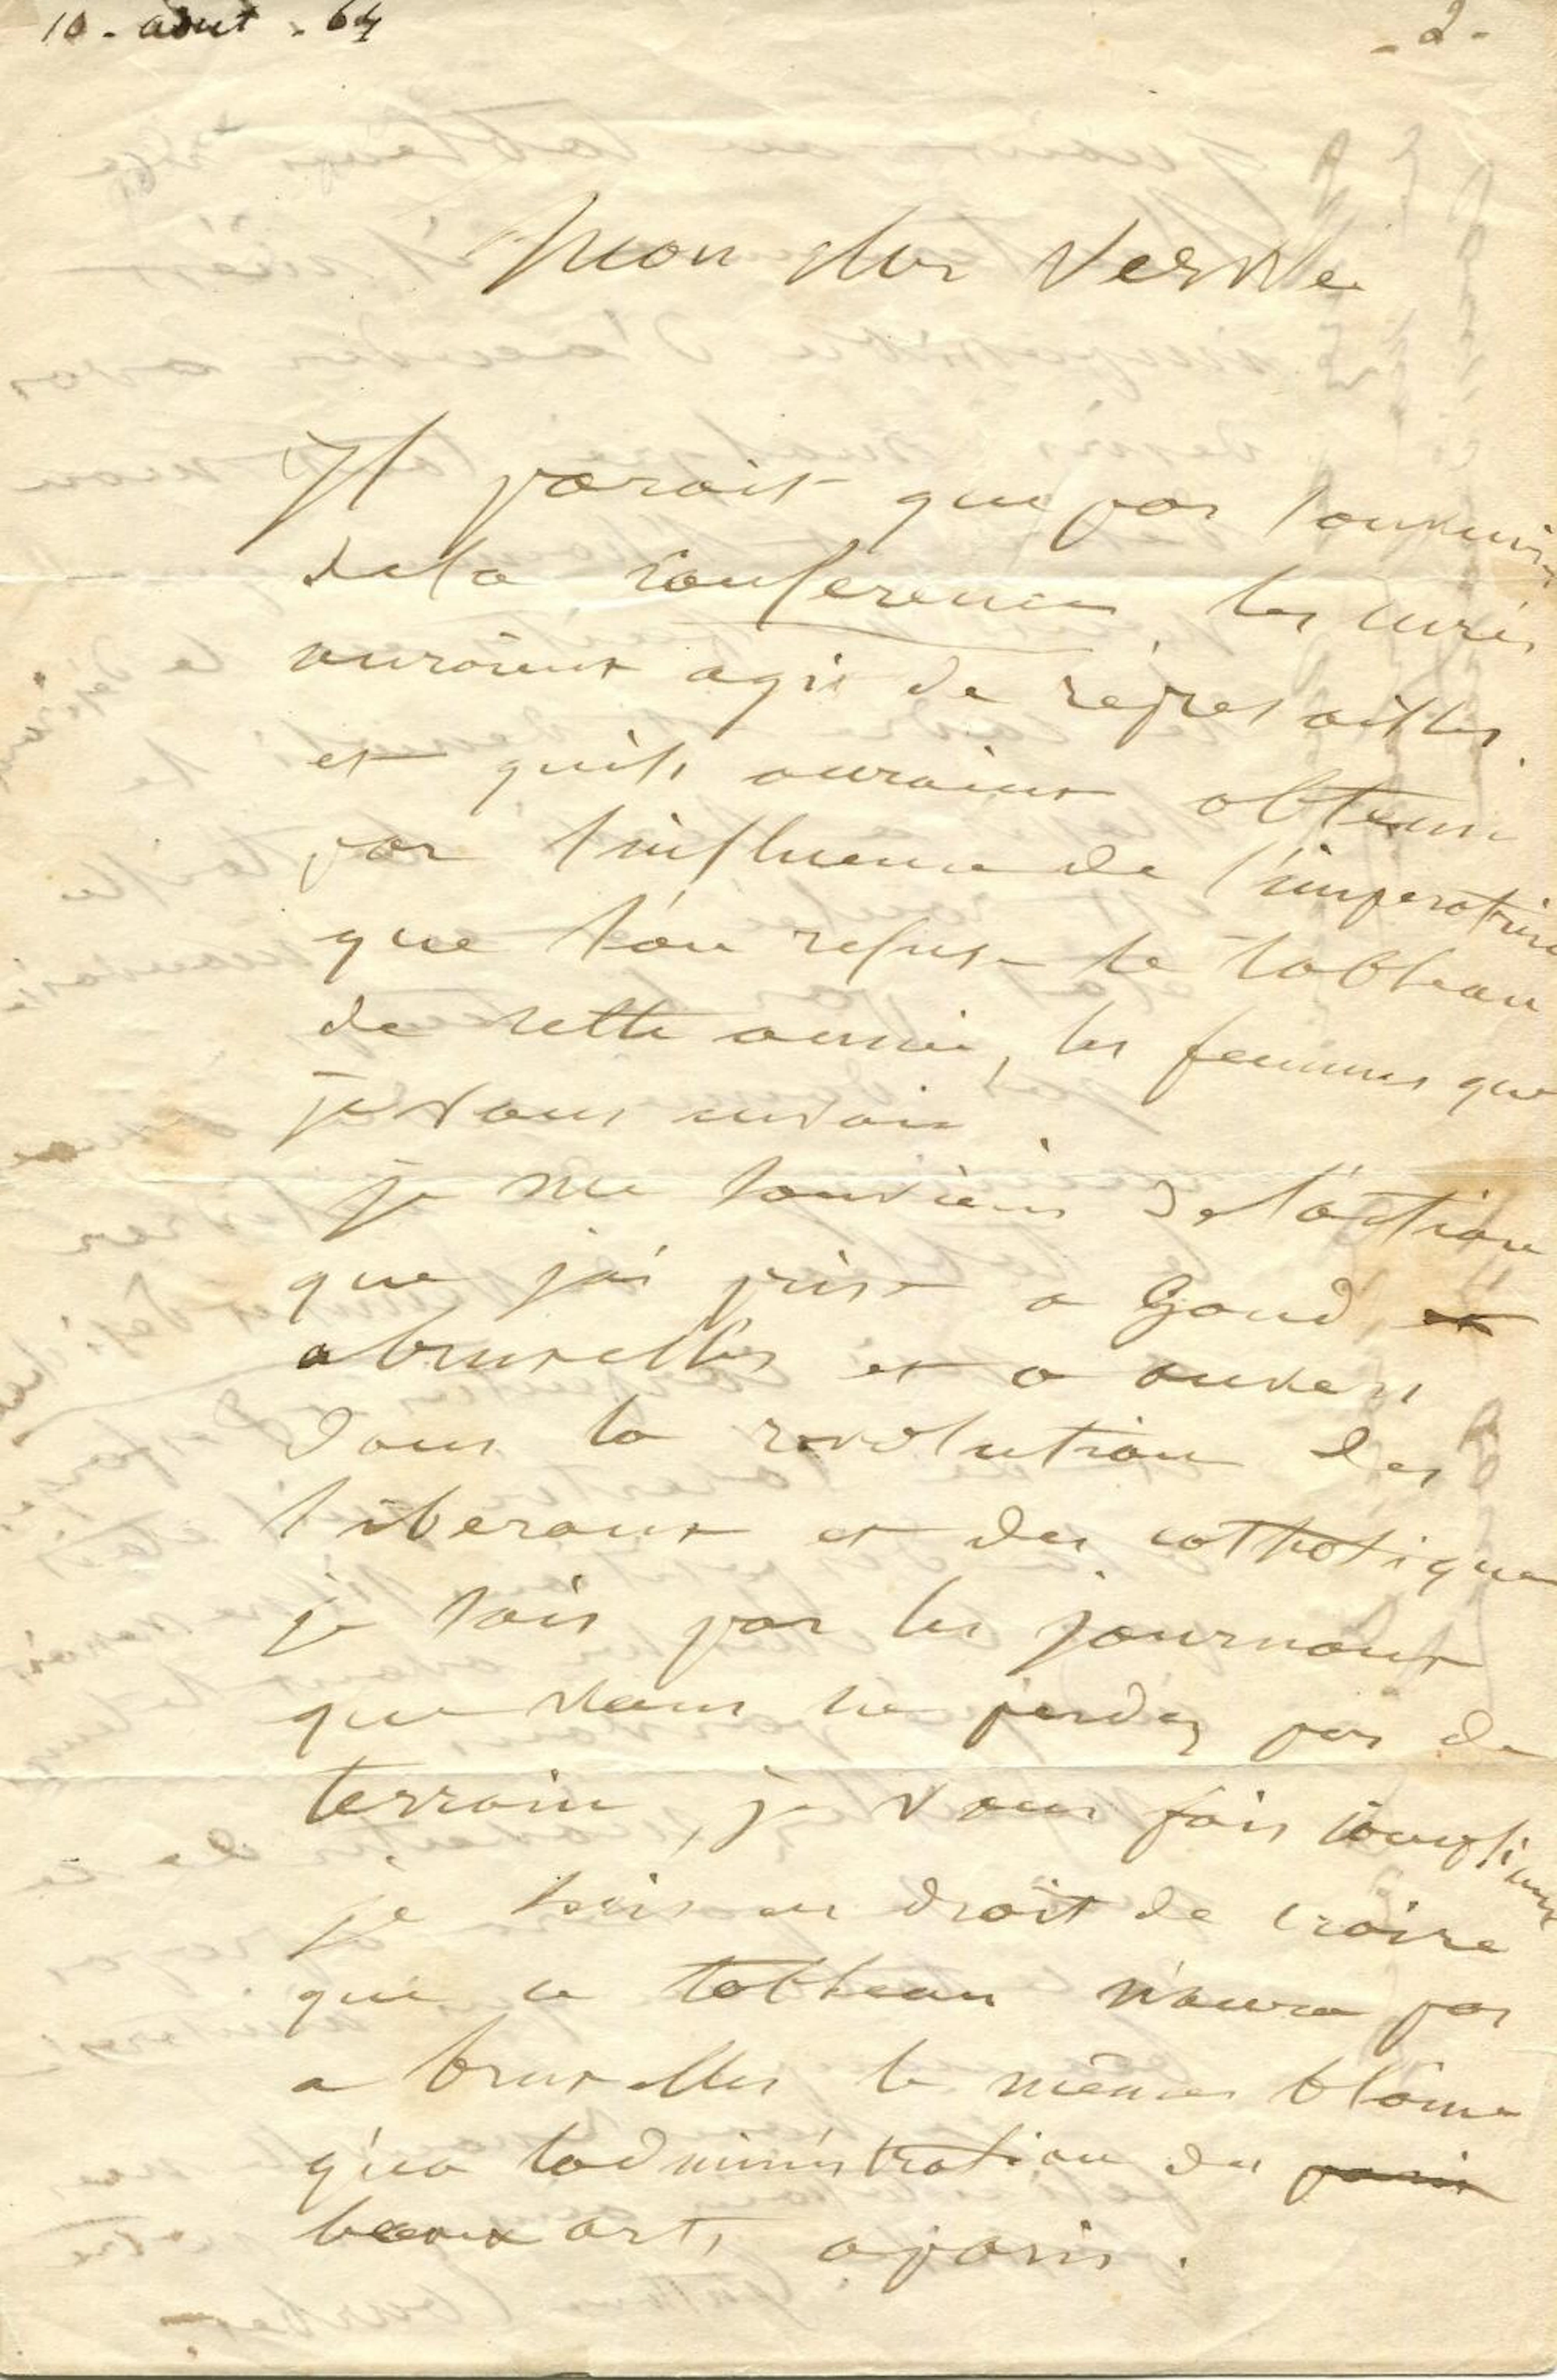 10 - aout - 64
- 2 -
Mon cher Vervée
Il parait que par souvenir
de la conference les curés
auraient agis de represailles.
et qu'ils auraient obtenu
par l'influence de l'imperatrice
que l'on refuse le tableau
de cette année, les femmes que
je vous envoie.
je me souviens de l'action
que j'ai prise a Gand, et
a bruxelles et a anvers
dans la revolution des
liberaux et des catholiques
je sais par les journaux
que vous ne perdez pas de
terrain, je vous fais compliment
je suis en droit de croire
que ce tableau n'aura pas
a bruxelles le même blâme
qu'a l'administration des paris
beaux arts a paris.